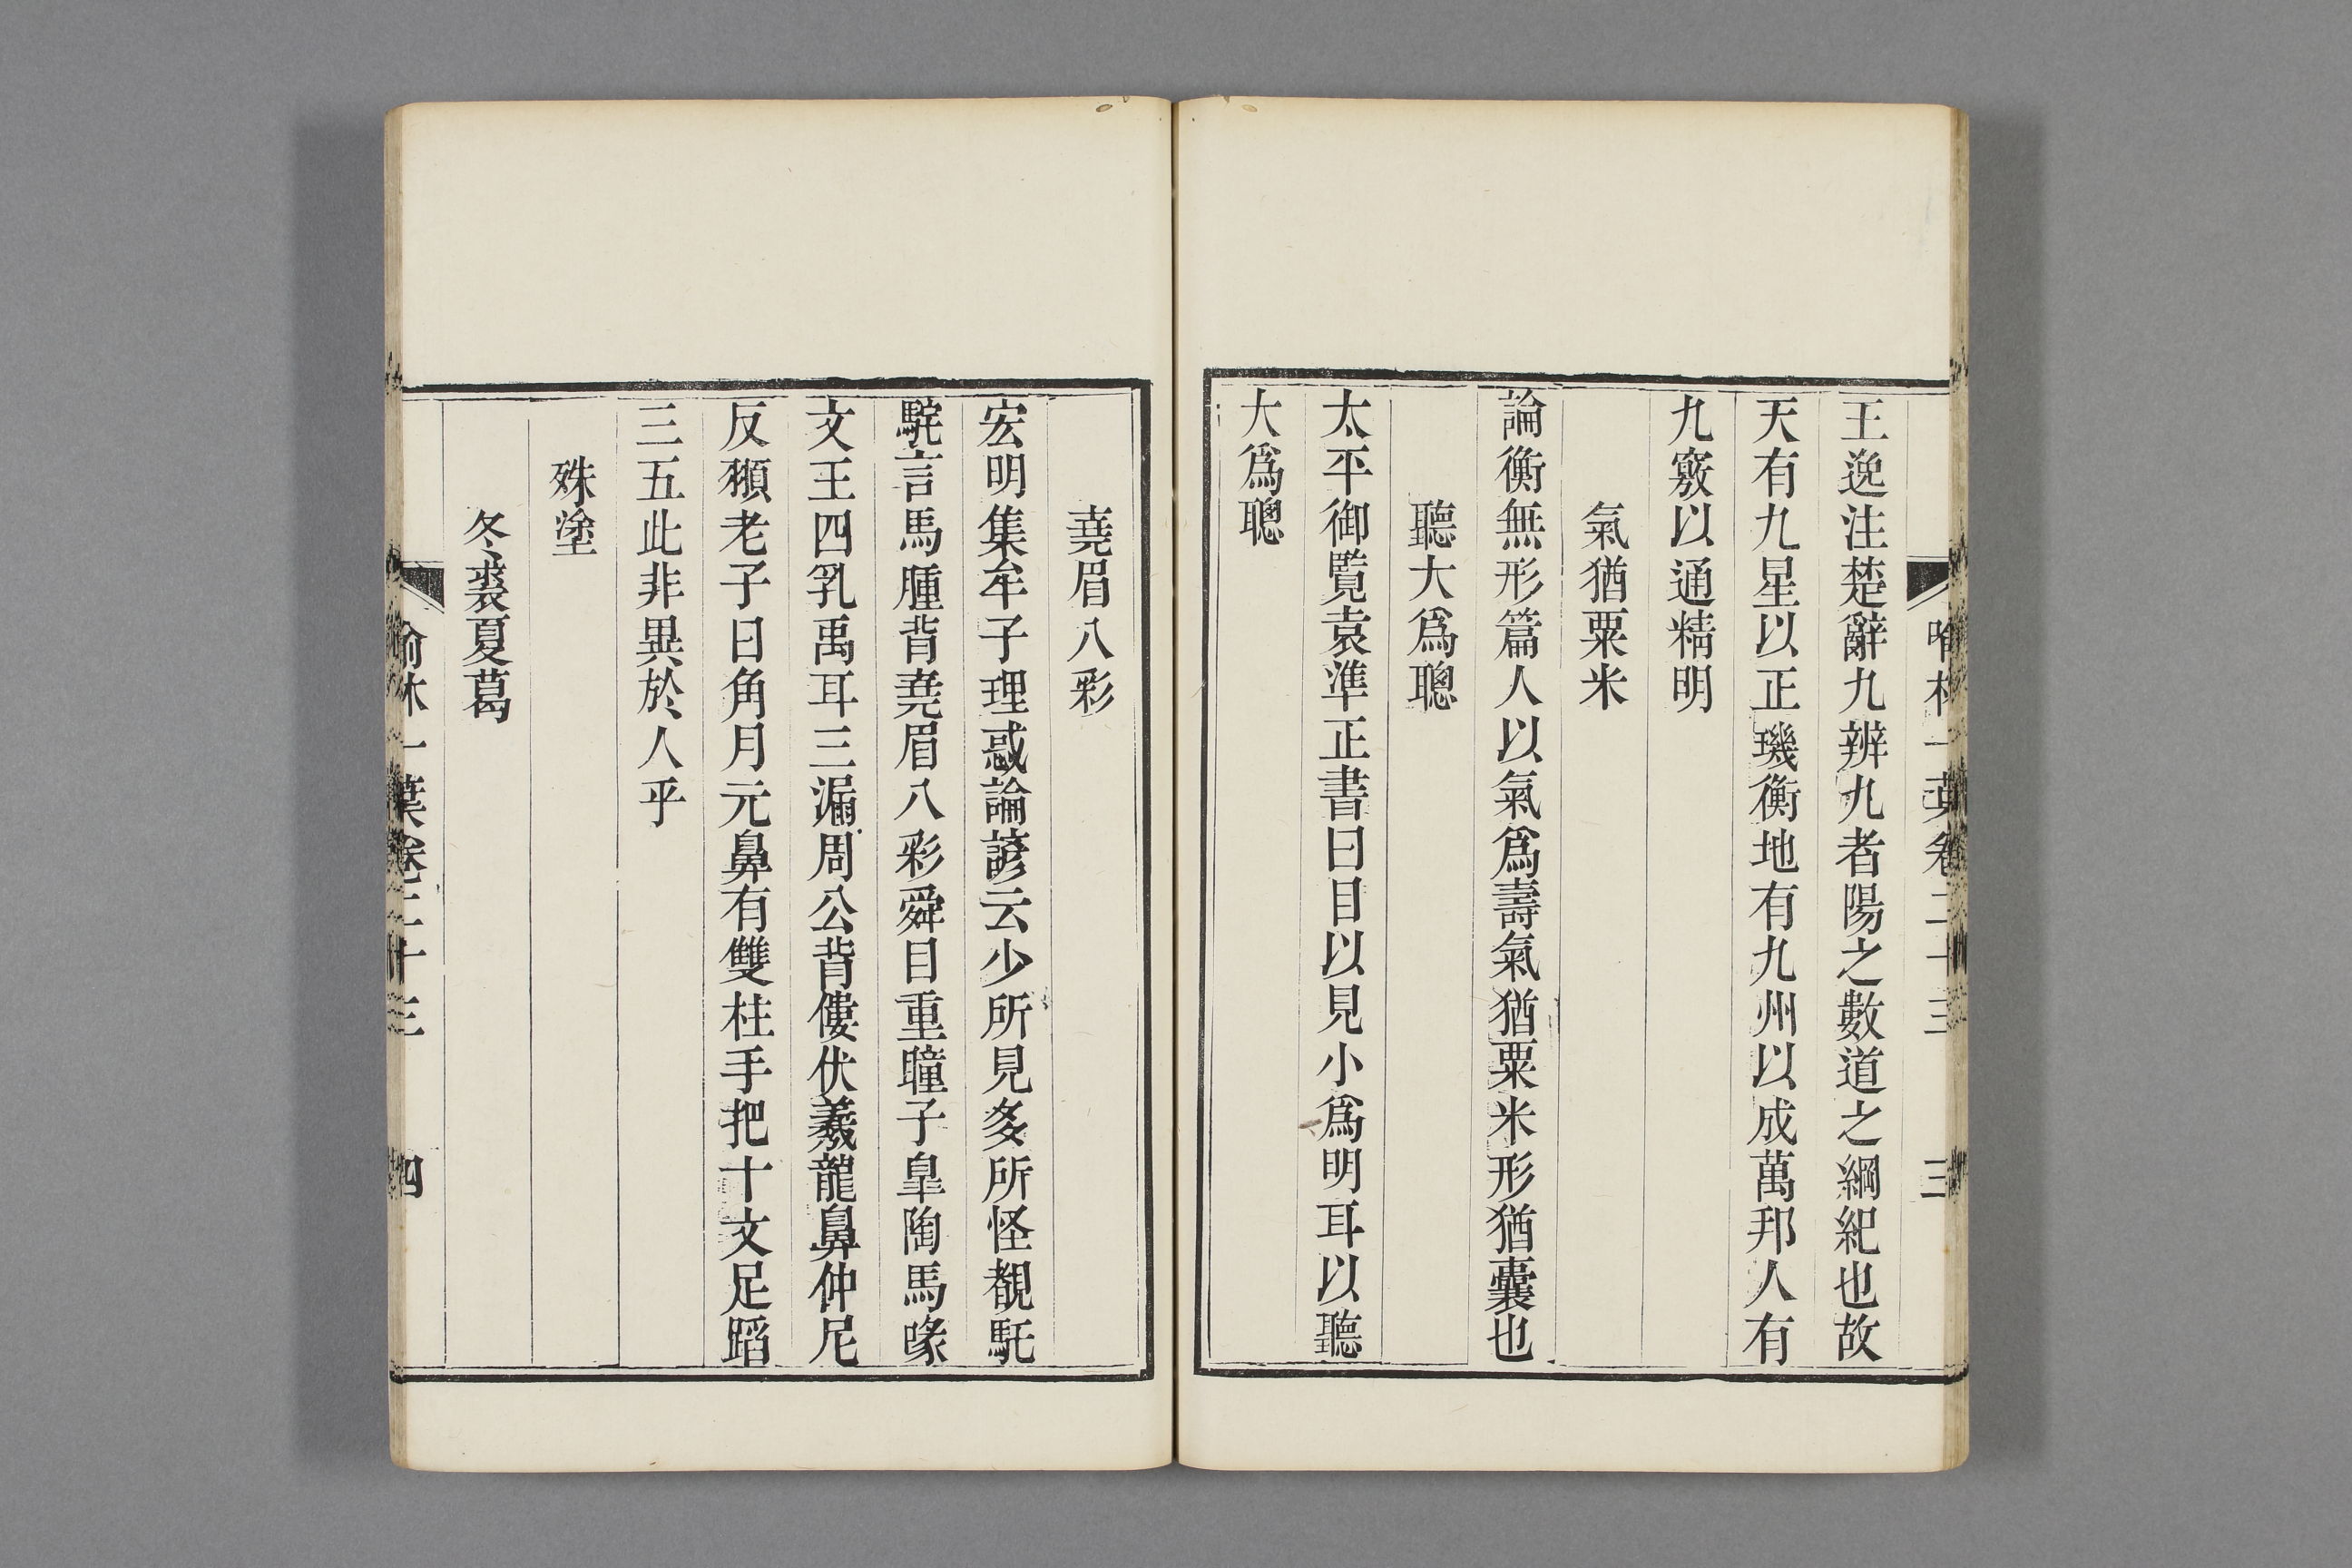 王逸注楚辭九辨九者陽之數道之綱紀也故
天有九星以正璣衡地有九州以成萬邦人有
九竅以通精明
氣猶粟米
論衡無形篇人以氣爲壽氣猶粟米形猶囊也
聽大爲聰
太平御覽袁準正書曰目以見小爲明耳以聽
大爲聰
堯眉八彩
宏明集牟子理惑論諺云少所見多所怪覩馲
駝言馬腫背堯眉八彩舜目重瞳子皐陶馬喙
文王四乳禹耳三漏周公背僂伏羲龍鼻仲尼
反頨老子日角月元鼻有雙柱手把十文足蹈
三五此非異於人乎
殊塗
冬裘夏葛
喻林一葉卷二十三 四